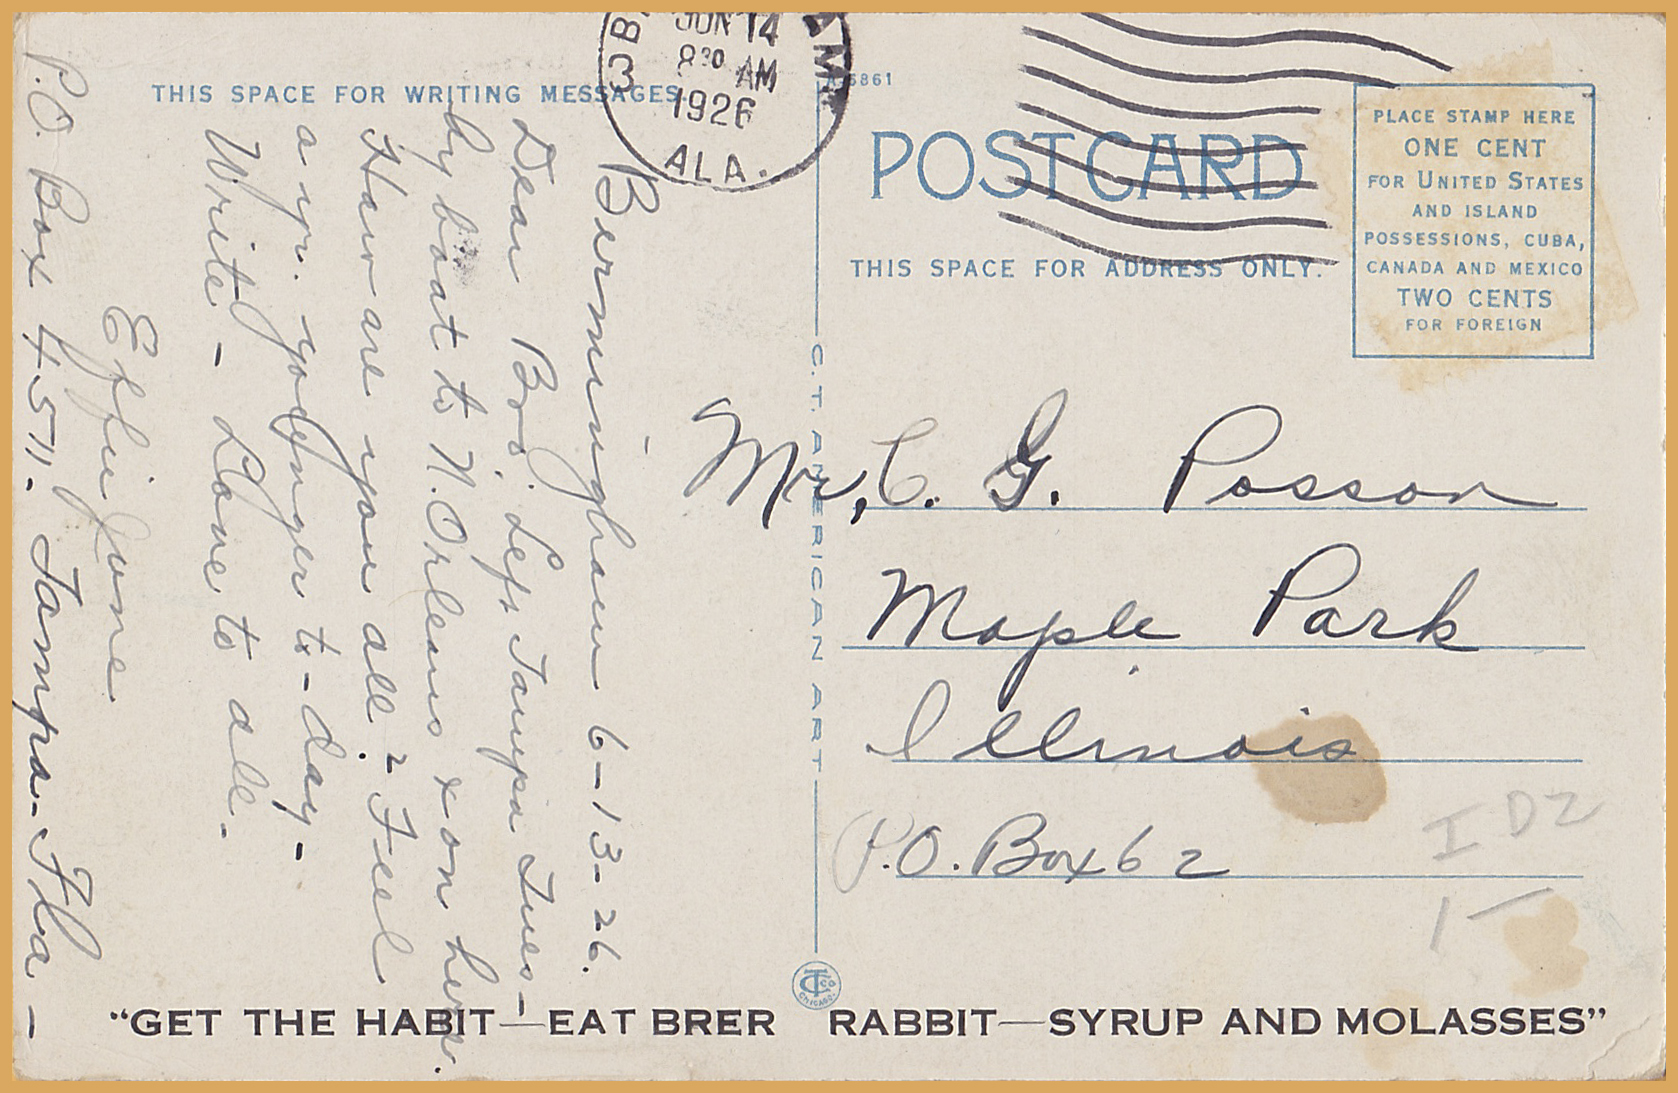 THIS SPACE FOR WRITING MESSAGES
JUN 14
8 30 AM
1926
ALA.
A-6861
POST CARD
THIS SPACE FOR ADDRESS ONLY.
PLACE STAMP HERE
ONE CENT
FOR UNITED STATES
AND ISLAND
POSSESSIONS, CUBA,
CANADA AND MEXICO
TWO CENTS
FOR FOREIGN
C.T. AMERICAN ART
Bermingham 6-13-26.
Dear Bro. Left Tampa Tues-
by boat to N. Orleans x on here.
How are you all? Feel
a yr. younger to-day-
Write - Love to all.
Effie Jane
P.O. Box 4511. Tampa-Fla-
Mr, C. G. Posson
Maple Park
Illinois
P.O. Box 62
I D2
1-
CTCO
CHICAGO.
"GET THE HABIT—EAT BRER RABBIT—SYRUP AND MOLASSES"